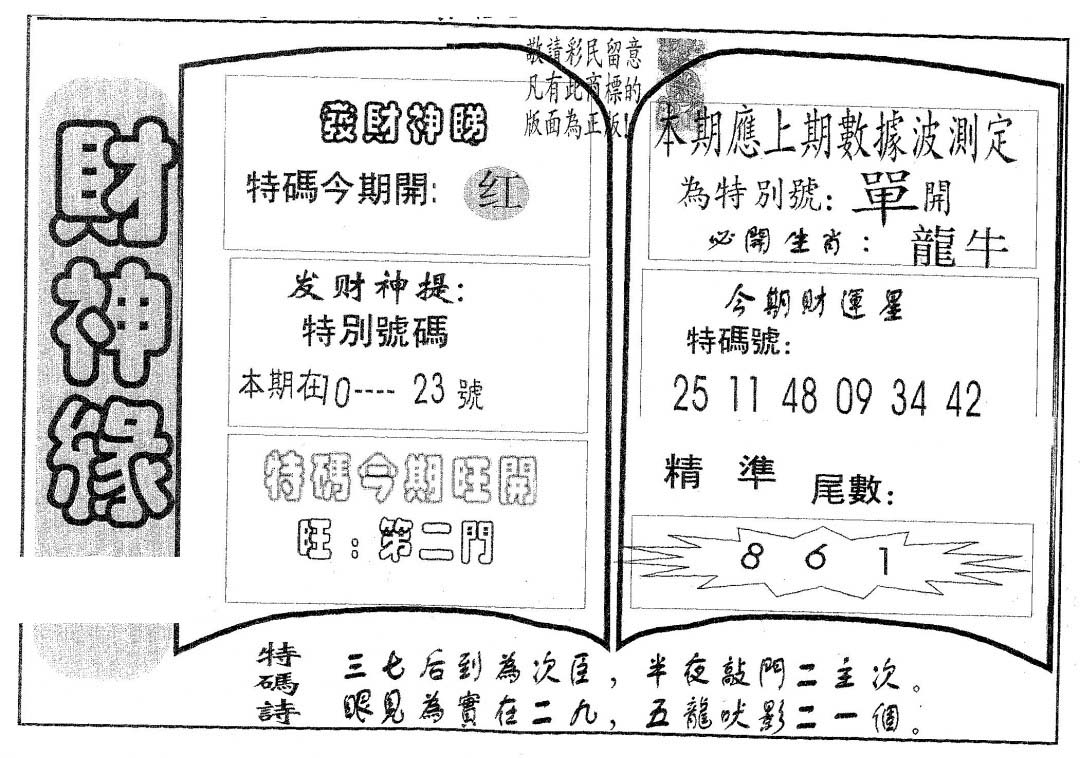 財神緣
敬請彩民留意
凡有此商標的
版面為正版!
發財神睇
特碼今期開: 红
发财神提:
特別號碼
本期在10---- 23號
特碼今期旺開
旺:第二門
本期應上期數據波測定
為特別號: 單開
必開生肖: 龍牛
今期財運星
特碼號:
25 11 48 09 34 42
精準 尾數:
8 6 1
特碼詩
三七后到為次臣,半夜敲門二主次。
眼見為實在二九,五龍吠影二一個。